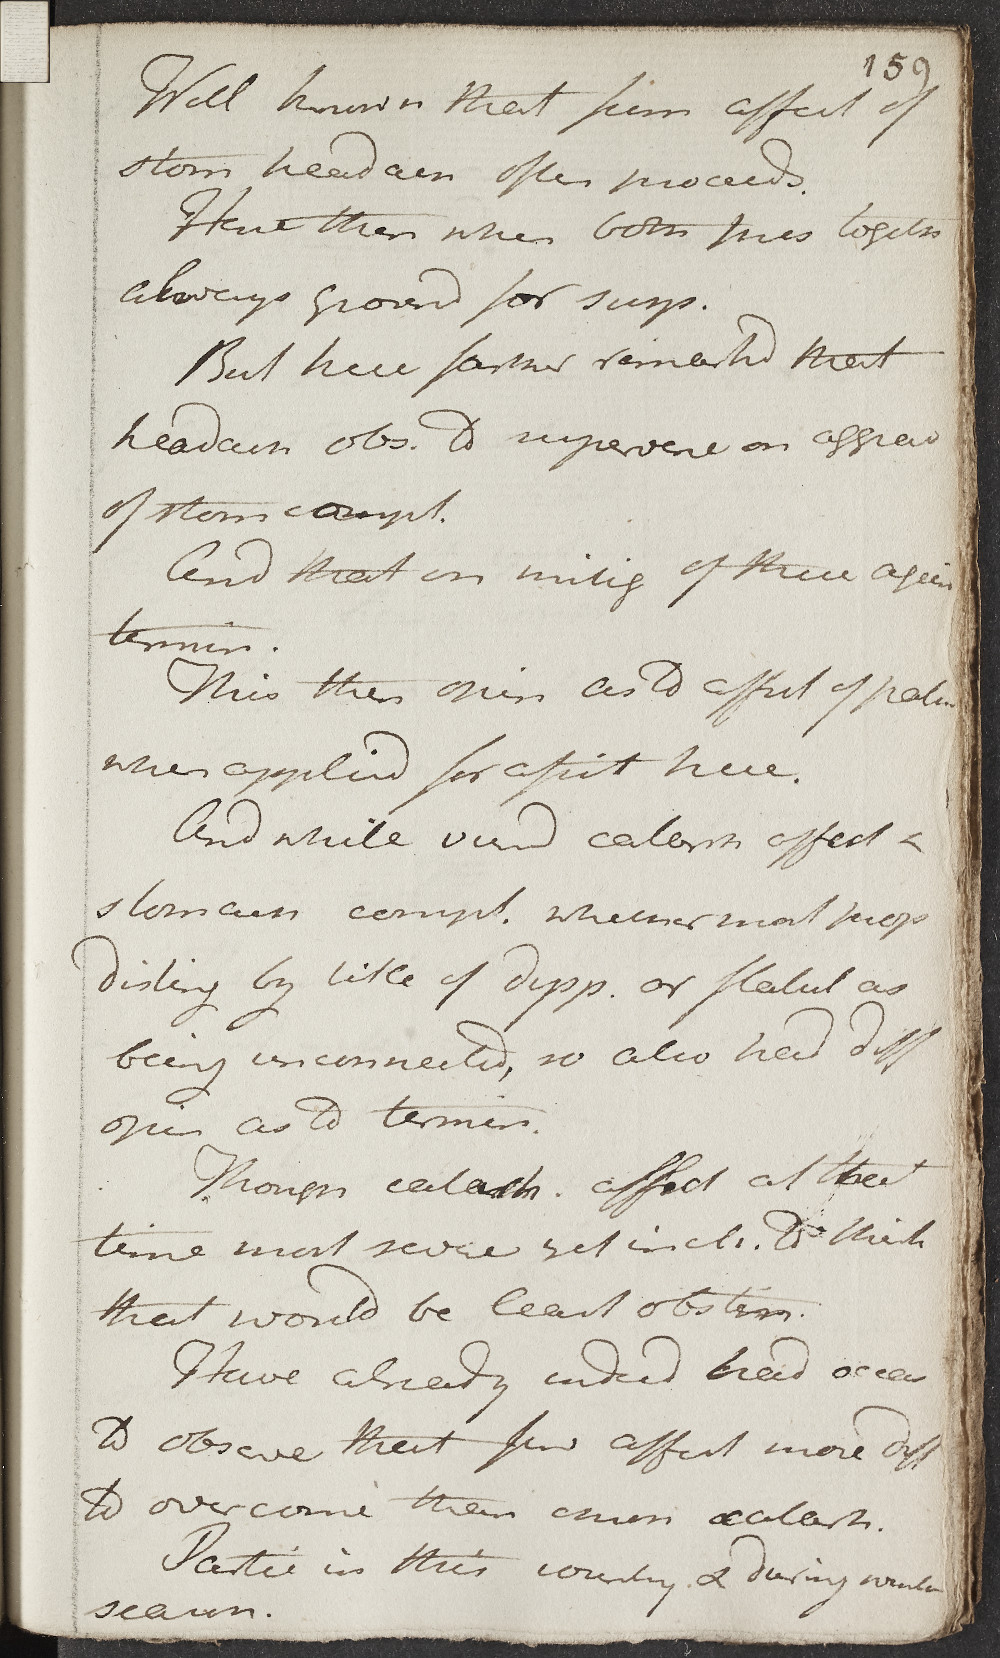 159
Well known that from affect of
stom headach often proceeds.
Have then when both pres togeth
always ground for susp.
But here farther remarkd that
headach obs. to supervene on aggrav
of stom compt.
And that on mitig of these again
termin.
This then opin as to affect of patien
when applied for assist here.
And while viewd catarrh affect &
stomach compt. whether most prop
disting by title of dysp. or flatul as
being unconnected, so also had diff
opin as to termin.
Though catarrh. affect at that
time most severe yet incln. to think
that would be least obstin.
Have already indeed had occas
to observe that few affect more diff
to overcome than chron catarrh.
Partic in this country & during winter
season.